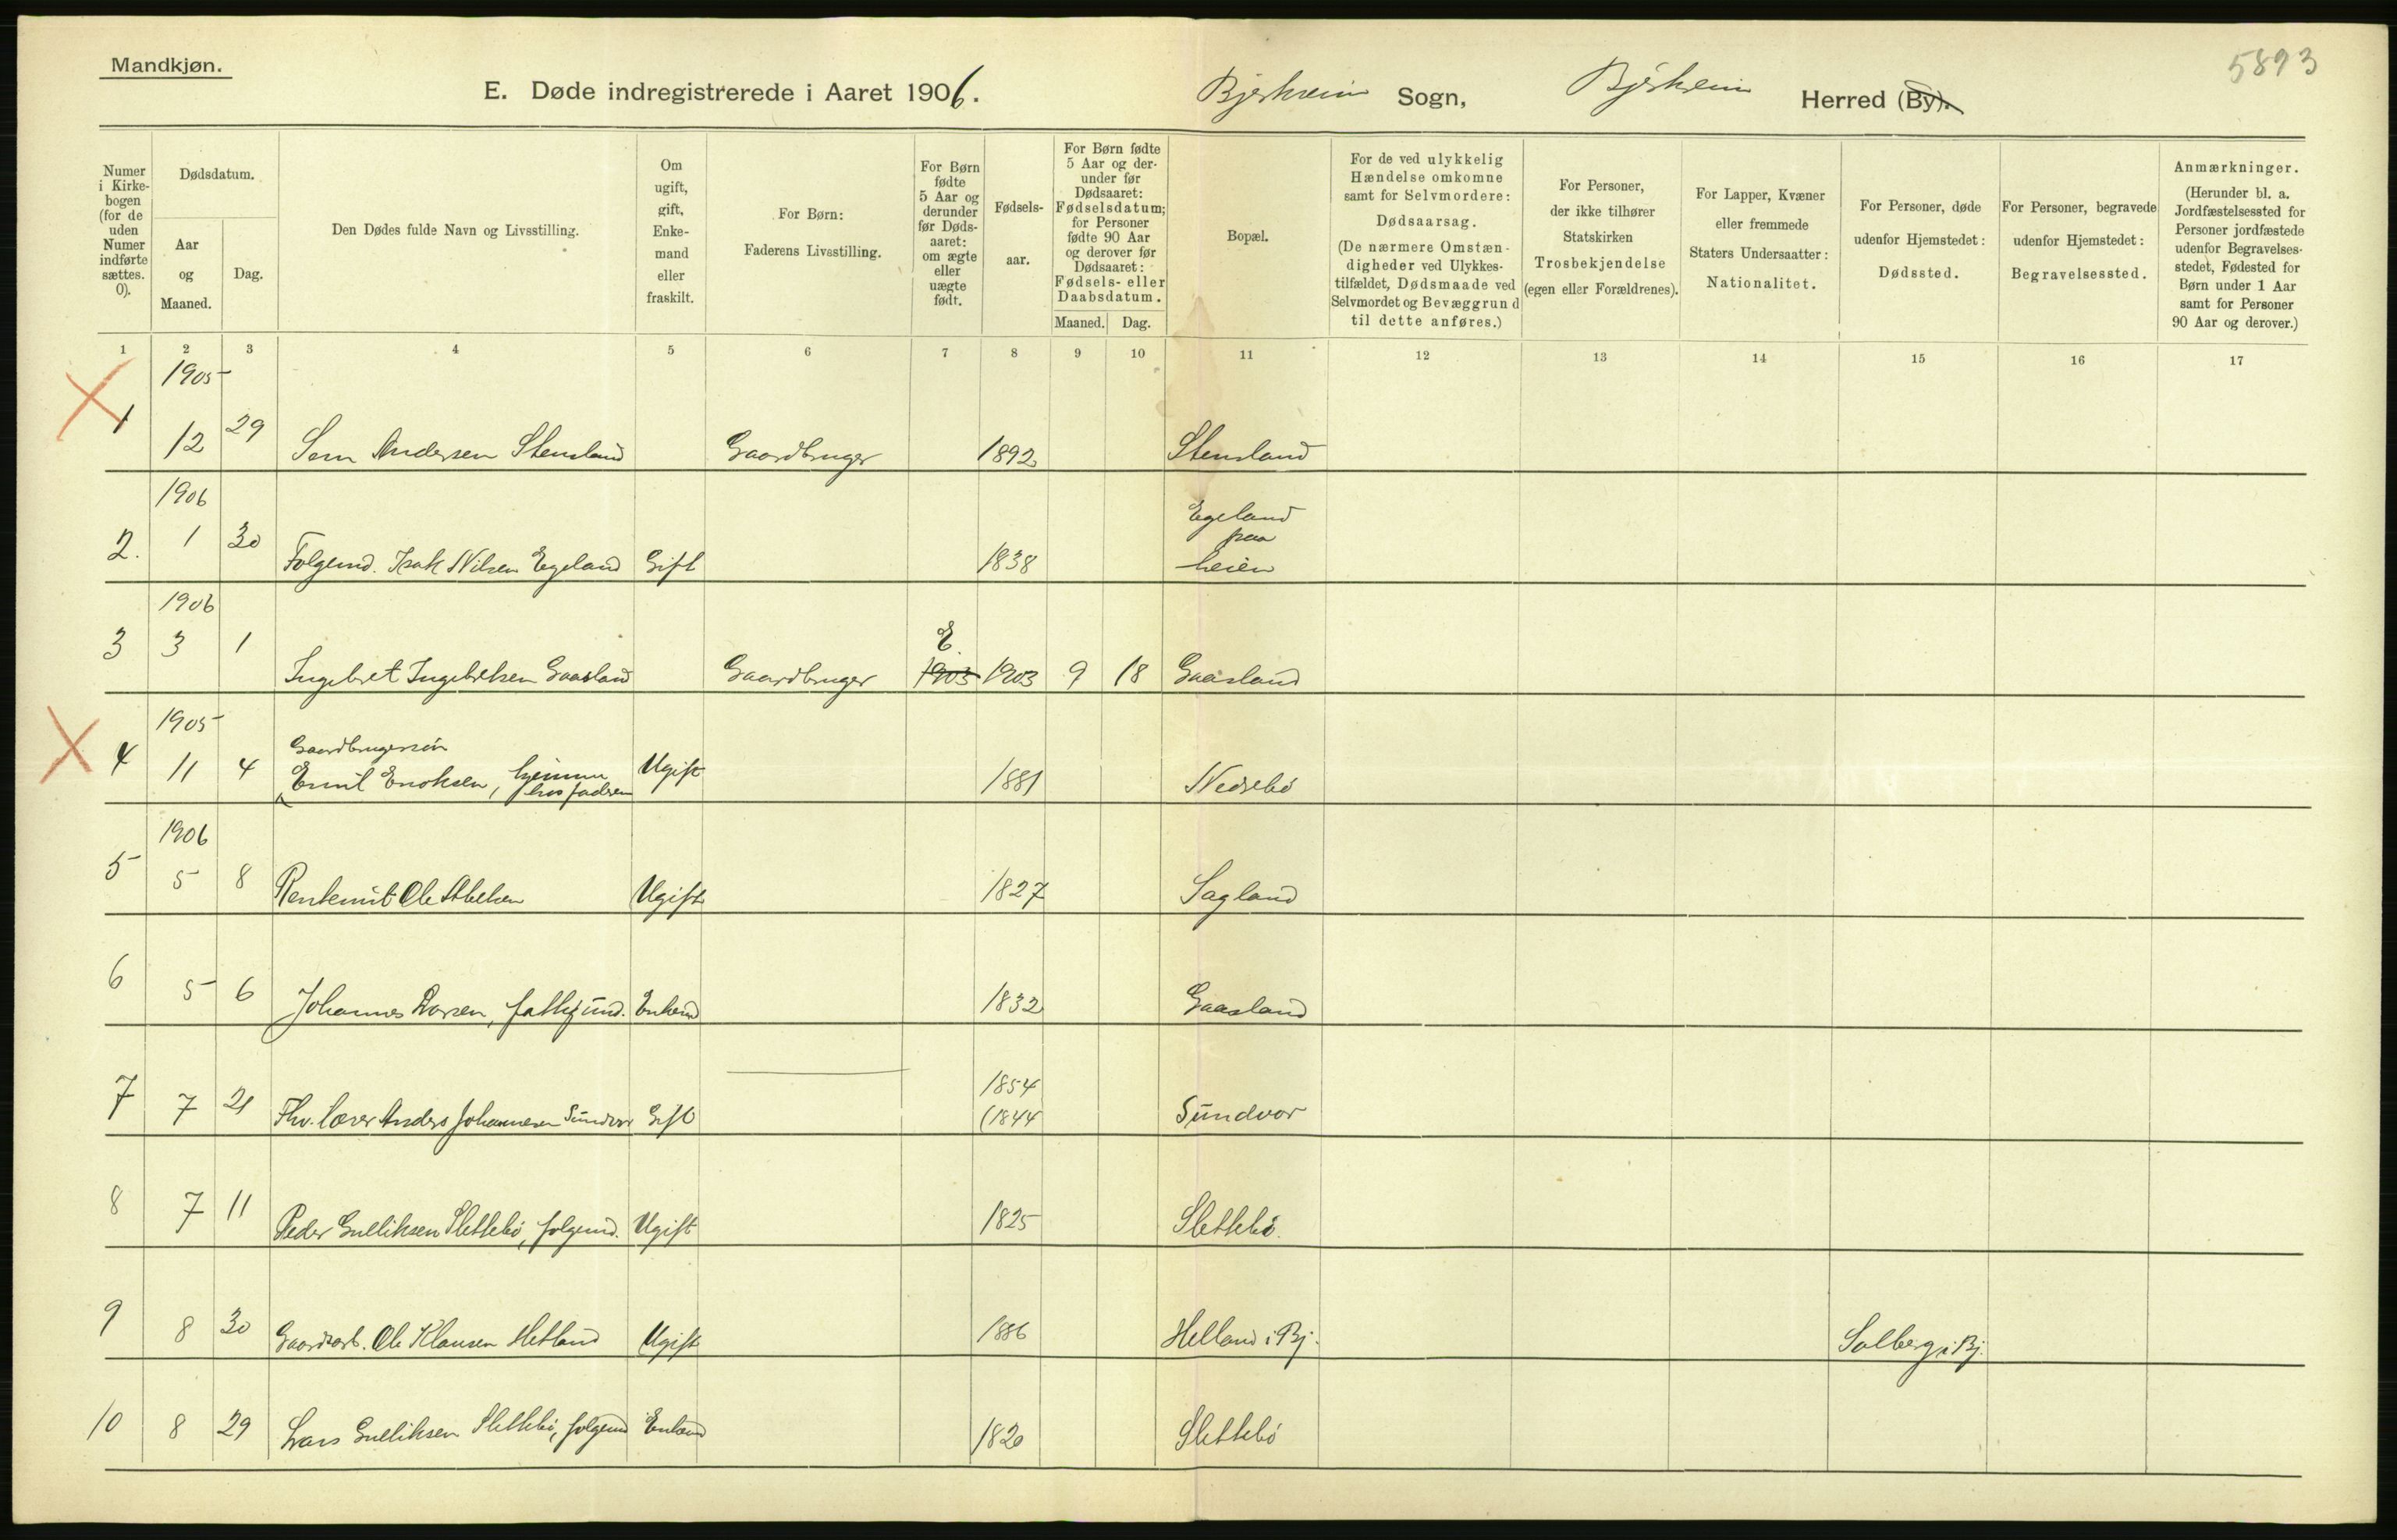 Mandkjøn.
5893
E. Døde indregistrerede i Aaret 1906.
Bjerkreim Sogn, Bjerkreim Herred (By).
Numer i Kirke-
bogen
(for de
uden
Numer
indførte
sættes.
0).
Dødsdatum.
Aar
og
Maaned.
Dag.
Den Dødes fulde Navn og Livsstilling.
Om
ugift,
gift,
Enke-
mand
eller
fraskilt.
For Børn:
Faderens Livsstilling.
For Børn
fødte
5 Aar og
derunder
før Døds-
aaret:
om ægte
eller
uægte
født.
Fødsels-
aar.
For Børn fødte
5 Aar og der-
under før
Dødsaaret:
Fødselsdatum;
for Personer
fødte 90 Aar
og derover før
Dødsaaret:
Fødsels- eller
Daabsdatum.
Maaned. Dag.
Bopæl.
For de ved ulykkelig
Hændelse omkomne
samt for Selvmordere:
Dødsaarsag.
(De nærmere Omstæn-
digheder ved Ulykkes-
tilfældet, Dødsmaade ved
Selvmordet og Bevæggrund
til dette anføres.)
For Personer,
der ikke tilhører
Statskirken
Trosbekjendelse
(egen eller Forældrenes).
For Lapper, Kvæner
eller fremmede
Staters Undersaatter:
Nationalitet.
For Personer, døde
udenfor Hjemstedet:
Dødssted.
For Personer, begravede
udenfor Hjemstedet:
Begravelsessted.
Anmærkninger.
(Herunder bl. a.
Jordfæstelsessted for
Personer jordfæstede
udenfor Begravelses-
stedet, Fødested for
Børn under 1 Aar
samt for Personer
90 Aar og derover.)
1 2 3 4 5 6 7 8 9 10 11 12 13 14 15 16 17
1905
1 12 29 Sem Andersen Stensland Gaardbruger 1892 Stensland
1906
2. 1 30 Folgemd. Isak Nilsen Egeland Gift 1838 Egeland
paa
heien
1906
3 3 1 Ingebret Ingebretsen Gaasland Gaardbruger E. 1903 1903 9 18 Gaasland
1905
Gaardbrugersøn
4 11 4 Emil Enoksen, hjemme Ugift 1881 Nedrebø
hos faderen
1906
5 5 8 Ole Ugift 1827 Sagland
6 5 6 Johannes fattigund. Enkemd 1832 Gaasland
1854
7 7 21 Fhv. lærer Anders Johannesen Sundvor Gift (1844 Sundvor
8 7 11 Peder Gulliksen Slettebø, folgemd. Ugift 1825 Slettebø.
9 8 30 Gaardsarb. Ole Klausen Hetland Ugift 1886 Helland i Bj. Solberg i Bj.
10 8 29 Lars Gulliksen Slettebø, folgemd Enkemd 1820 Slettebø